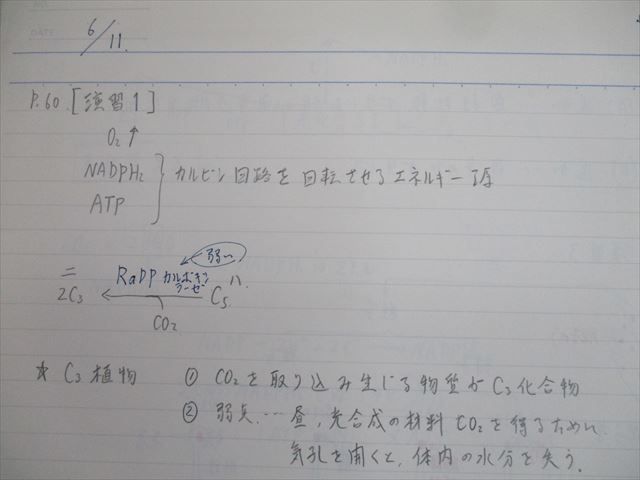 6/11.
P.60. [演習1]
O₂↑
NADPH₂
ATP
カルビン回路を回転させるエネルギー源
弱い
ニ RaDP カルボキシラーゼ ハ.
2C₃ ← C₅
CO₂
* C₃植物 ① CO₂を取り込み生じる物質がC₃化合物
② 弱点…昼,光合成の材料CO₂を得るために
気孔を開くと,体内の水分を失う.